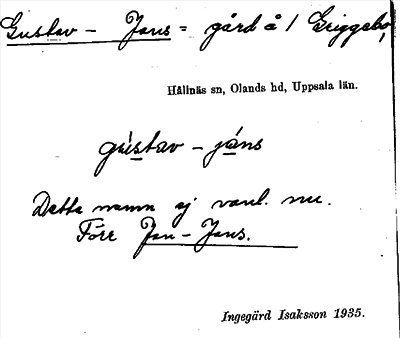 Gustav - Jans = gård å 1 Griggebo,
Hållnäs sn, Olands hd, Uppsala län.
gústav - jáns
Detta namn ej vanl. nu.
Förr Jan - Jans.
Ingegärd Isaksson 1935.